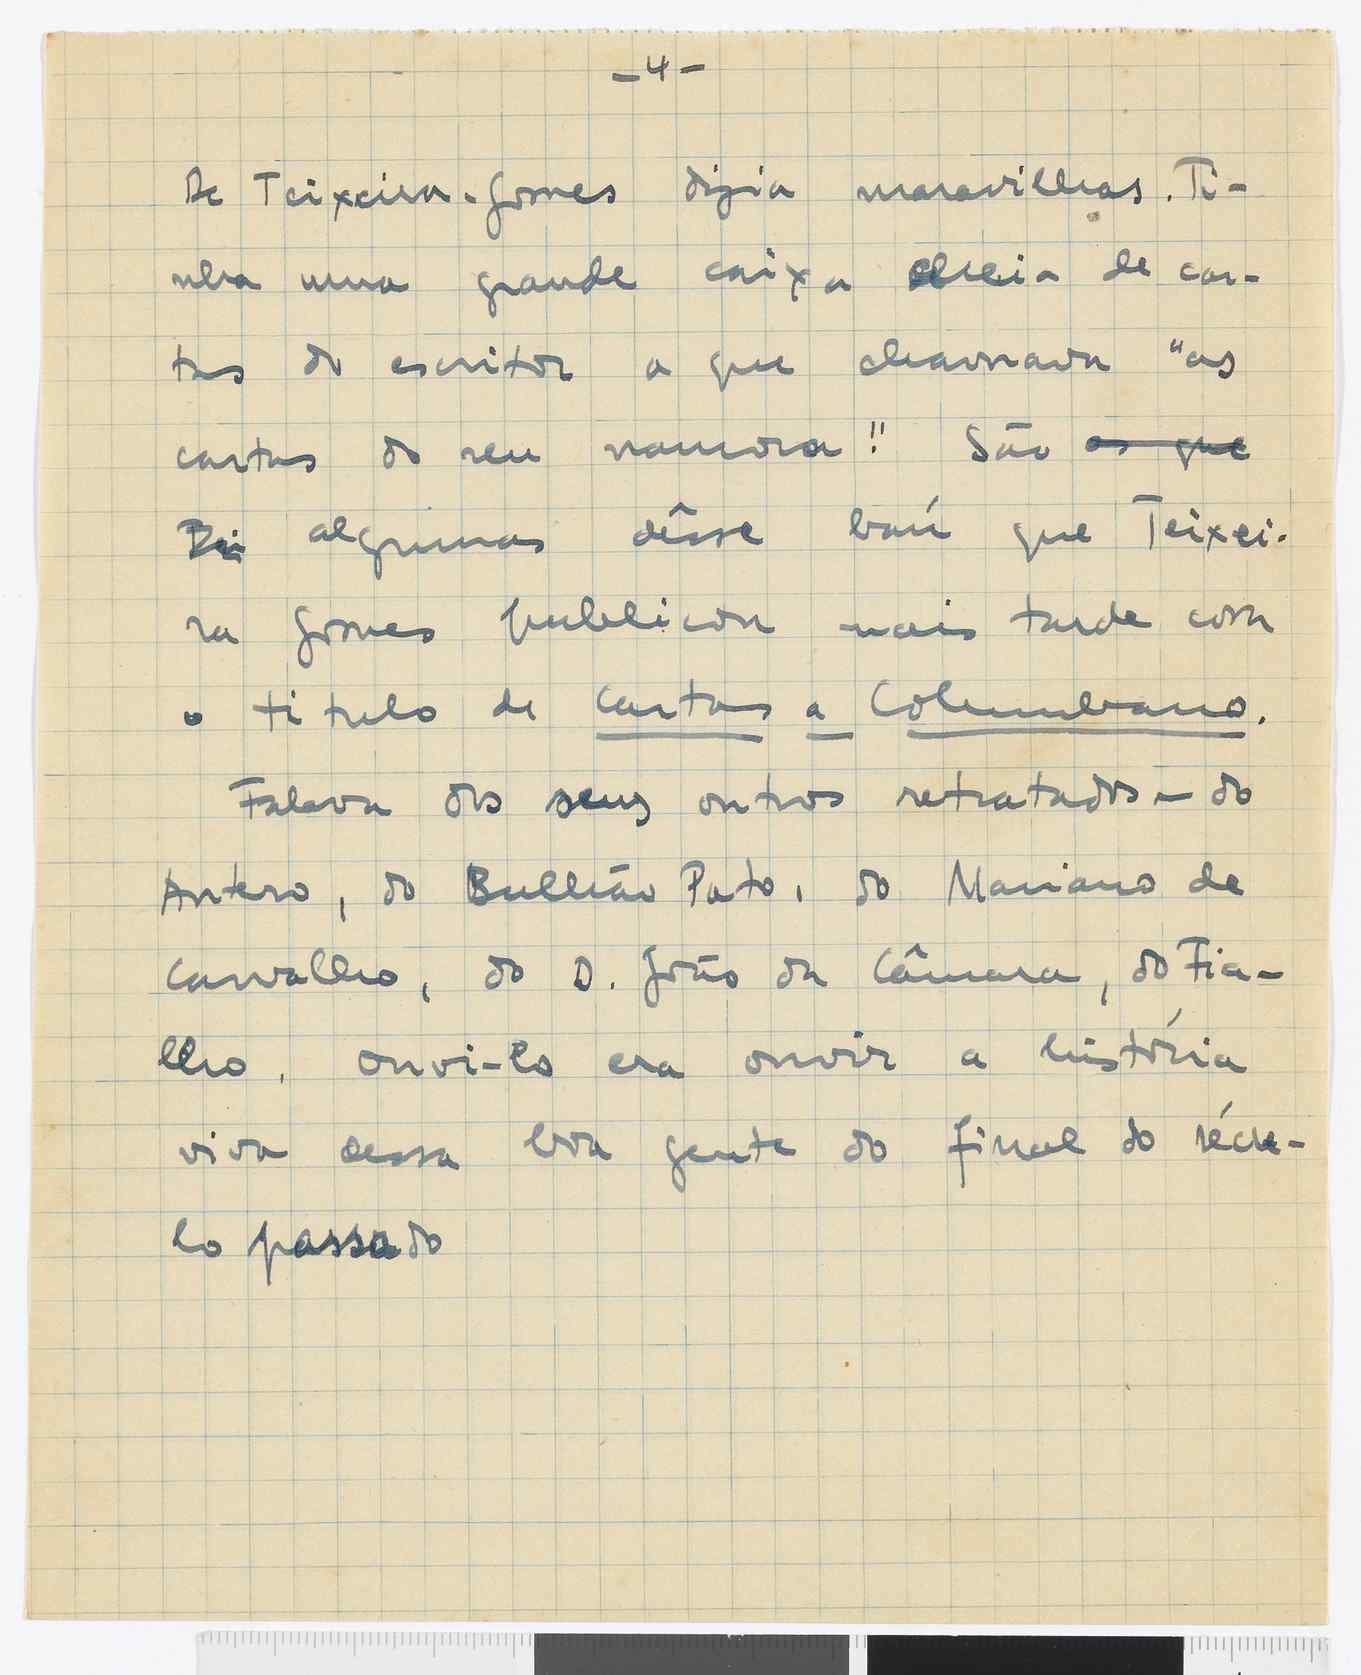 -4-
De Teixeira-Gomes dizia maravilhas. Ti-
nha uma grande caixa cheia de car-
tas do escritor a que chamava "as
cartas do seu namoro". São as que
algumas dêsse baú que Teixei-
ra Gomes publicou mais tarde com
o titulo de Cartas a Columbano.
Falava dos seus outros retratados - do
Antero, do Bulhão Pato, do Mariano de
Carvalho, do D. João da Câmara, do Fia-
lho. Ouvi-lo era ouvir a história
viva dessa boa gente do final do sécu-
lo passado